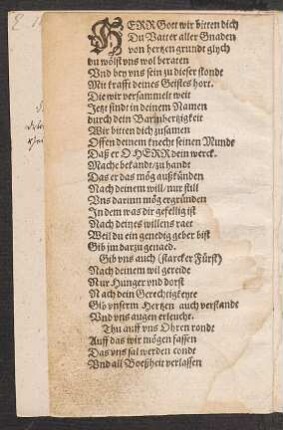 HERR Gott wir bitten dich
Du Vatter aller Gnaden
von hertzen grundt glych
du wölst vns wol beraten
Vnd bey vns sein zu dieser stonde
Mit krafft deines Geistes hort.
Die wir versammelt weit
Jetz sindt in deinem Namen
durch dein Barmhertzigkeit
Wir bitten dich zusamen
Offen deinem knecht seinen Munde
Daß er O HERR dein werck.
Mache bekandt/zu handt
Das er das mög außkünden
Nach deinem will/nur still
Vns darinn mög ergründen
In dem was dir gefellig ist
Nach deines willens raet
Weil du ein genedig geber bist
Gib jm darzu genaed.
Gib vns auch (starcker Fürst)
Nach deinem wil gereide
Nur Hunger vnd dorst
Nach dein Gerechtigkeyte
Gib vnserm Hertzen auch verstande
Vnd vns augen erleucht.
Thu auff vns Ohren ronde
Auff das wir mögen fassen
Das vns sal werden conde
Vnd all Boeßheit verlassen